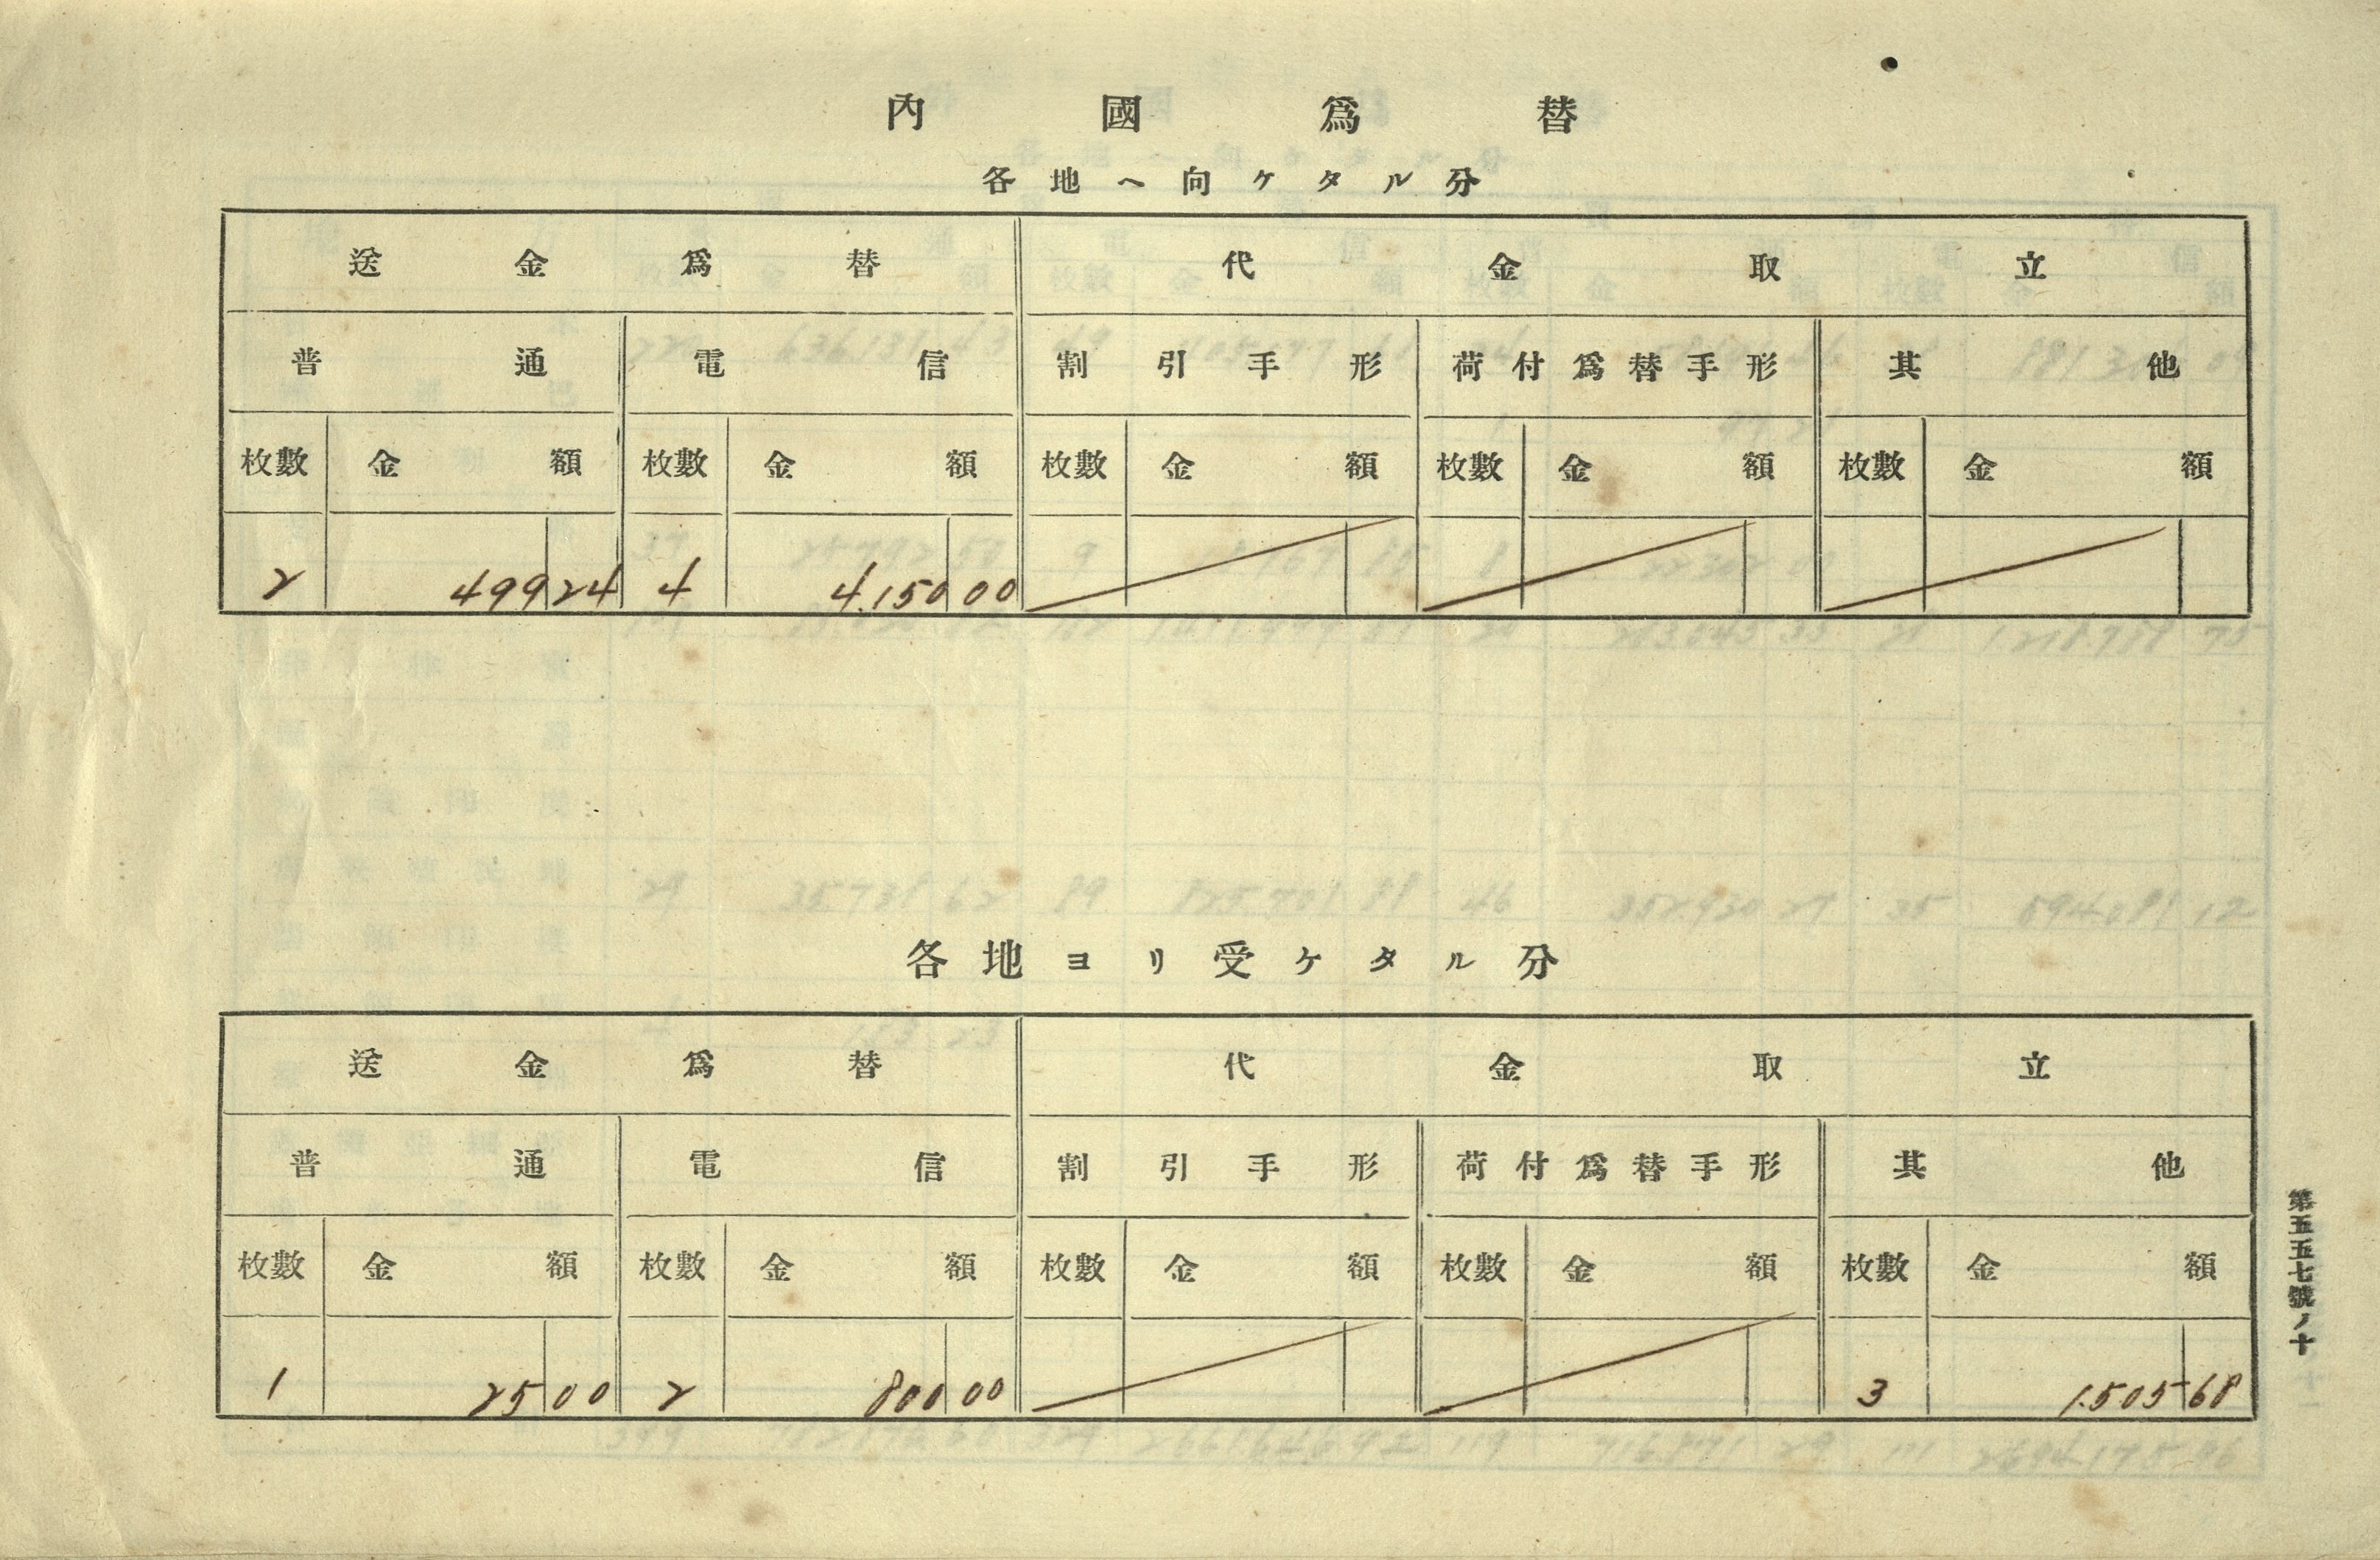 內國爲替
各地ヘ向ケタル分
送金爲替 代金取立
普通 電信 割引手形 荷付爲替手形 其他
枚數 金額 枚數 金額 枚數 金額 枚數 金額 枚數 金額
2 499 24 4 4,150 00
各地ヨリ受ケタル分
送金爲替 代金取立
普通 電信 割引手形 荷付爲替手形 其他
枚數 金額 枚數 金額 枚數 金額 枚數 金額 枚數 金額
1 25 00 2 800 00 3 1,505 68
第五五七號ノ十